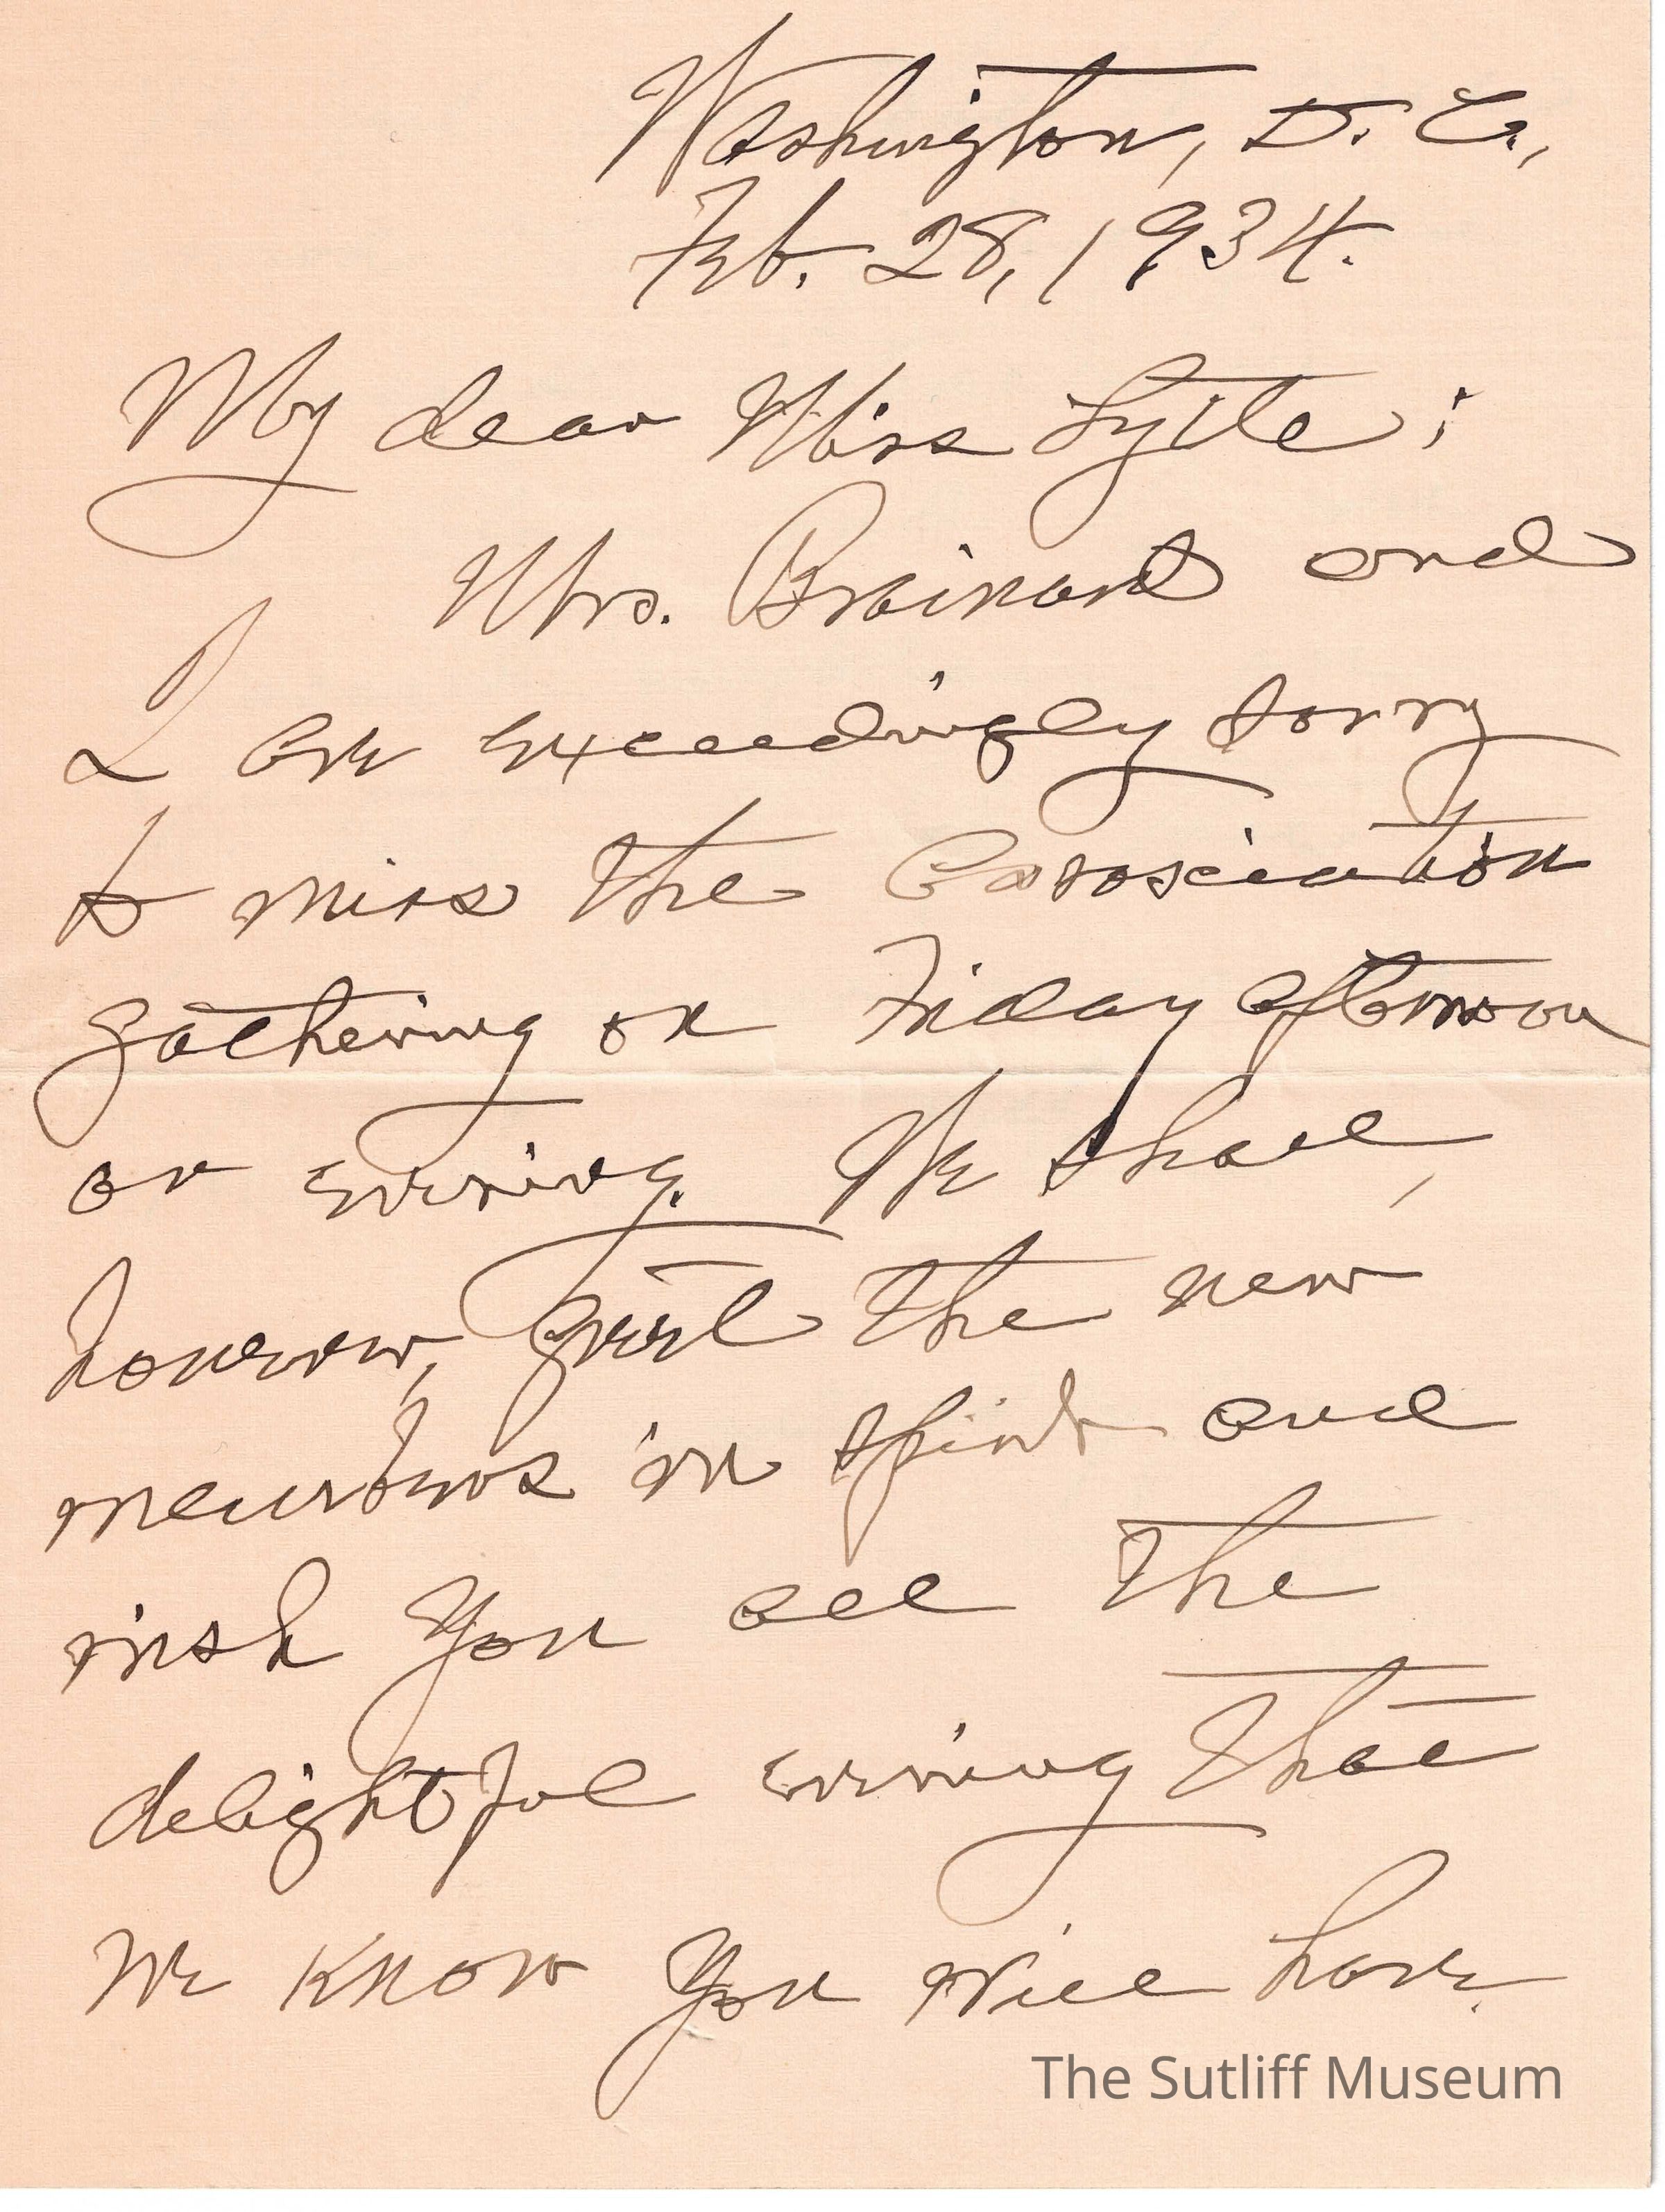 Washington, D. C.,
Feb. 28, 1934.
My dear Miss Lytle:
Mrs. Brainard and
I are exceedingly sorry
to miss the Association
gathering on Friday afternoon
or evening. We shall,
however, greet the new
members in spirit and
wish you all the
delightful evening that
we know you will have.
The Sutliff Museum